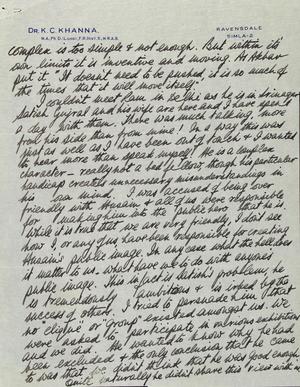 DR. K. C. KHANNA.
M.A., PH.D. (LOND.), F.R.HIST.S., M.R.A.S.
RAVENSDALE
SIMLA-2
complex is too simple & not enough. But within its
own limits it is inventive and moving. As Akbar
put it "It doesn't need to be pushed, it is so much of
the times that it will move itself".
I couldn't meet Ram in Delhi as he is in Srinagar
Satish Gujral and his wife are here and I have spent
a day with them. There was much talking, more
from his side than from mine! In a way this was
just as well as I have been out of health & I wanted
to hear more than speak myself! He is a complex
character - really not a bad fellow, though his particular
handicap creates unnecessary misunderstandings in
his own mind. I was accused of being over
friendly with Husain & all of us were responsible
for making him into the "public hero" that he is.
While it is true that we are very friendly, I don't see
how I, or any of us have been responsible for creating
Husain's public image. In any case what the hell does
it matter to us. What have we to do with anyone's
public image. This in fact is Satish's problem, he
is tremendously ambitious & is irked by the
success of others. I tried to persuade him that
no clique or "group" existed amongst us. We
were asked to participate in various exhibitions
and we did. He wanted to know why he had
been excluded & the only conclusion that he came
to was that we didn't think that he was good enough
Quite naturally he didn't share this view with